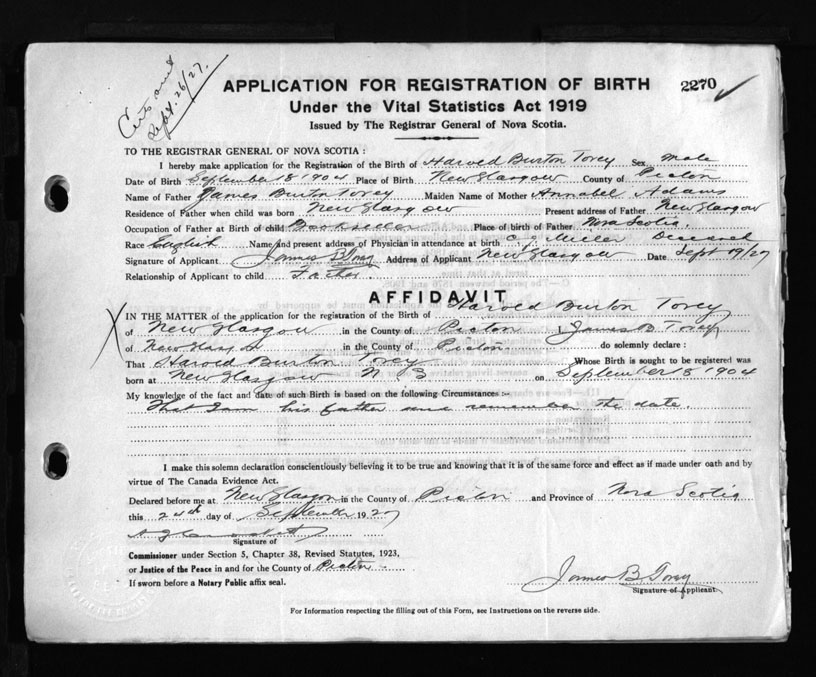 Sept. 26/27.
APPLICATION FOR REGISTRATION OF BIRTH 2270
Under the Vital Statistics Act 1919
Issued by The Registrar General of Nova Scotia.
TO THE REGISTRAR GENERAL OF NOVA SCOTIA :
I hereby make application for the Registration of the Birth of Harold Burton Torey Sex Male
Date of Birth September 18 1904 Place of Birth New Glasgow County of Pictou
Name of Father James Burton Torey Maiden Name of Mother Annabel Adams
Residence of Father when child was born New Glasgow Present address of Father New Glasgow
Occupation of Father at Birth of child Bookseller Place of birth of Father Nova Scotia
Race English Name and present address of Physician in attendance at birth Miller Deceased
Signature of Applicant James B Torey Address of Applicant New Glasgow Date Sept 19/27
Relationship of Applicant to child Father
AFFIDAVIT
IN THE MATTER of the application for the registration of the Birth of Harold Burton Torey
of New Glasgow in the County of Pictou I, James B Torey
of New Glasgow in the County of Pictou do solemnly declare :
That Harold Burton Torey Whose Birth is sought to be registered was
born at New Glasgow N S on September 18 1904
My knowledge of the fact and date of such Birth is based on the following Circumstances :-
That I am his father and remember the date.
I make this solemn declaration conscientiously believing it to be true and knowing that it is of the same force and effect as if made under oath and by
virtue of The Canada Evidence Act.
Declared before me at New Glasgow in the County of Pictou and Province of Nova Scotia
this 24th day of September 1927
Signature of
Commissioner under Section 5, Chapter 38, Revised Statutes, 1923,
or Justice of the Peace in and for the County of Pictou
If sworn before a Notary Public affix seal.
James B Torey
Signature of Applicant
For Information respecting the filling out of this Form, see Instructions on the reverse side.